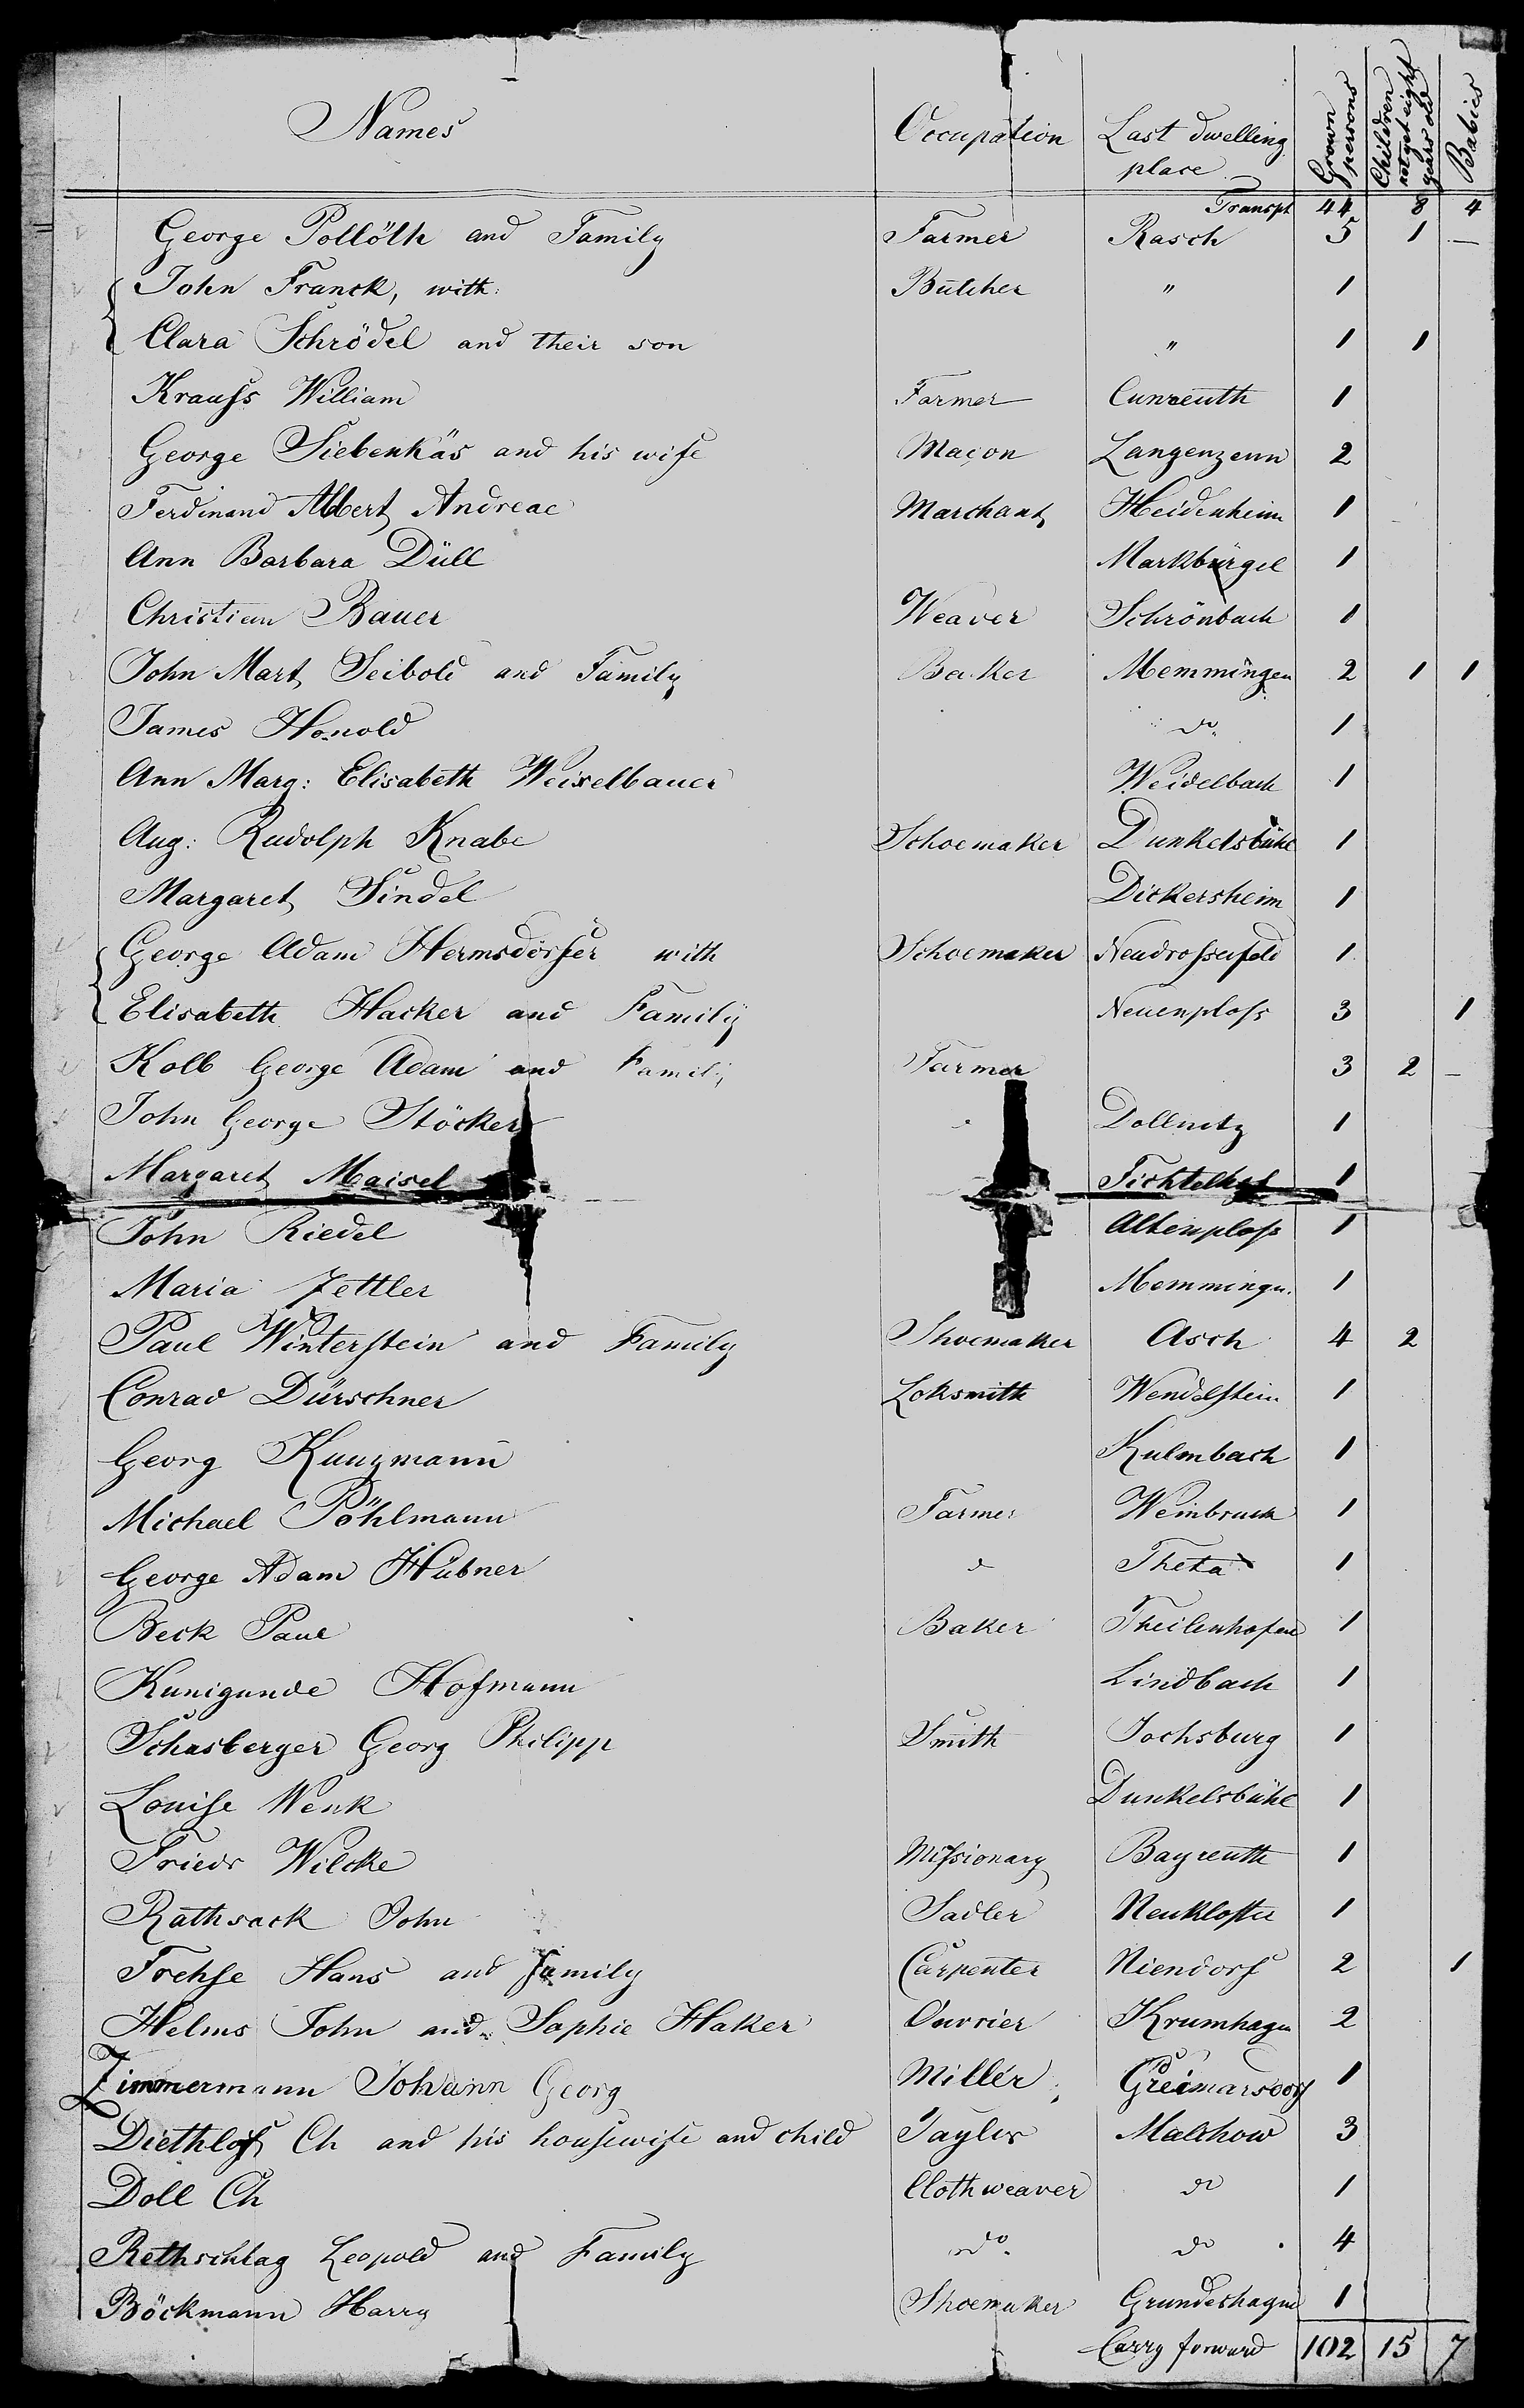 Names Occupation Last dwelling place Grown persons Children not yet eight years old Babies
Transpt 44 8 4
George Pollöth and Family Farmer Rasch 5 1 —
John Franck, with: Butcher " 1
Clara Schrödel and their son " 1 1
Krauſs William Farmer Cunreuth 1
George Siebenkäs and his wife Maçon Langenzenn 2
Ferdinand Albert Andreae Marchant Heidenheim 1
Ann Barbara Düll Markbürgel 1
Christian Bauer Weaver Schrönbach 1
John Mart Seibold and Family Baker Memmingen 2 1 1
James Honold do 1
Ann Marg: Elisabeth Weixelbauer Weidelbach 1
Aug: Rudolph Knabe Schoemaker Dunkelsbühl 1
Margaret Sindel Dickersheim 1
George Adam Hermsdörfer with Schoemaker Neudroſsenfeld 1
Elisabeth Hacker and Family Neuenploſs 3 1
Kolb George Adam and Family Farmer 3 2 —
John George Stöcker " Dollnitz 1
Margaret Maisel 1
John Riedel Altenploſs 1
Maria Zettler Memmingn. 1
Paul Winterſtein and Family Shoemaker Asch 4 2
Conrad Dürschner Loksmith Wendelſtein 1
Georg Kunzmann Kulmbach 1
Michael Pöhlmann Farmer Weinbruck 1
George Adam Hübner d Theta 1
Beck Paul Baker Theilenhofen 1
Kunigunde Hofmann Lindbach 1
Schasberger Georg Philipp Smith Jochsburg 1
Louiſe Wenk Dunkelsbühl 1
Friedr Wilcke Miſsionary Bayreuth 1
Rathsack John Sadler Neukloſter 1
Frehſe Hans and family Carpenter Niendorf 2 1
Helms John and Sophie Haker Ouvrier Krumhagen 2
Zimmermann Johann Georg Miller Greimarsdorf 1
Diethlof Ch and his houſewife and child Taylor Malchow 3
Doll Ch Clothweaver do 1
Rethschlag Leopold and Family do do 4
Böckmann Harry Shoemaker Grundeshagen 1
Carry forward 102 15 7